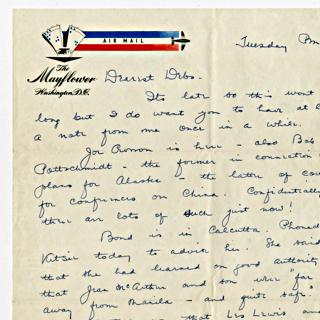 AIR MAIL
The
Mayflower
Washington, D.C.
Tuesday Pm
Dearest Debs-
Its late so this wont
long but I do want you to have at l
a note from me once in a while.
Joe is here - also Bob
Pottschmidt - the former in connection
plans for Alaska - the latter of cou
for conferences on China. Confidentially
there are lots of such just now!
Bond is in Calcutta. Phoned
Kitsie today to advise her. She said
that she had learned on good authority
that Jean McArthur and son were "far
away from Manila - and quite safe."
that Les Lewis and